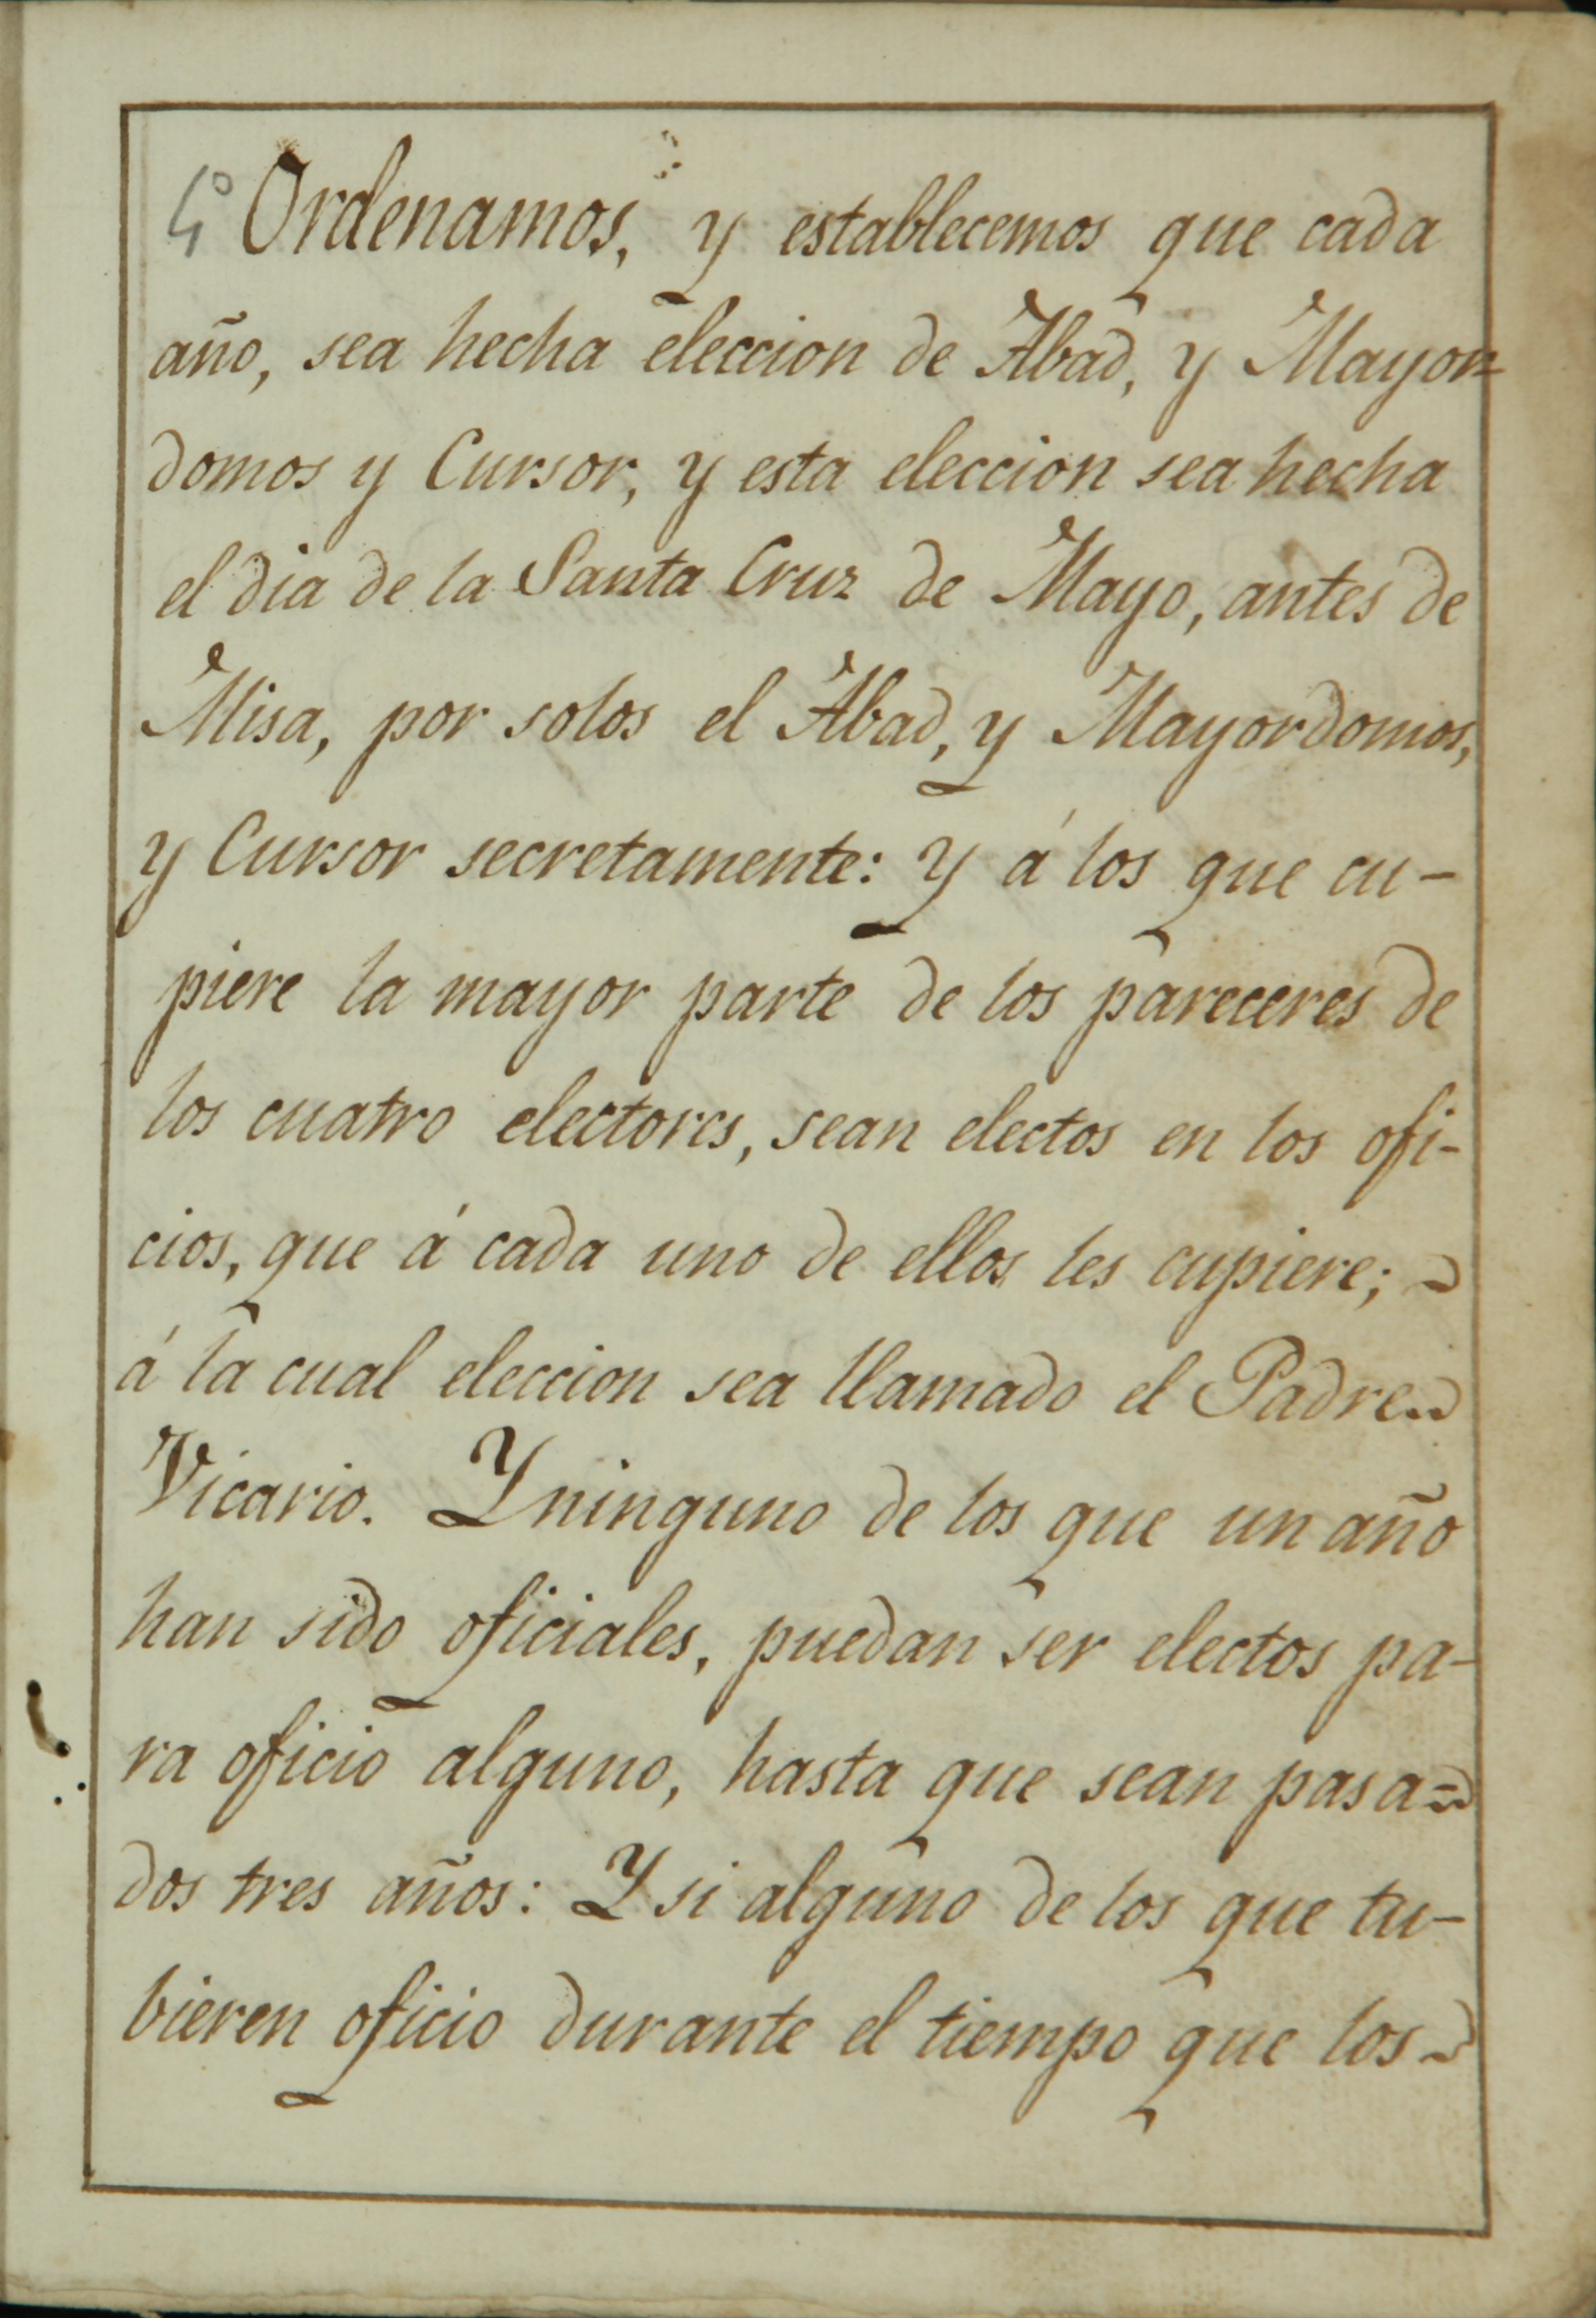 4º Ordenamos, y establecemos que cada
año, sea hecha eleccion de Abad, y Mayor=
domos y Cursor, y esta eleccion sea hecha
el dia de la Santa Cruz de Mayo, antes de
Misa, por solos el Abad, y Mayordomos,
y Cursor secretamente: y á los que cu-
piere la mayor parte de los pareceres de
los cuatro electores, sean electos en los ofi-
cios, que á cada uno de ellos les cupiere;
á la cual eleccion sea llamado el Padre
Vicario. Y ninguno de los que un año
han sido oficiales, puedan ser electos pa-
ra oficio alguno, hasta que sean pasa=
dos tres años: Y si alguno de los que tu-
bieren oficio durante el tiempo que los